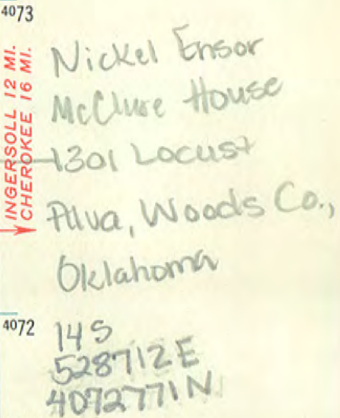 4073
INGERSOLL 12 MI.
CHEROKEE 16 MI.
Nickel Ensor
McClure House
1301 Locust
Alva, Woods Co.,
Oklahoma
4072
14 S
528712 E
4072771 N